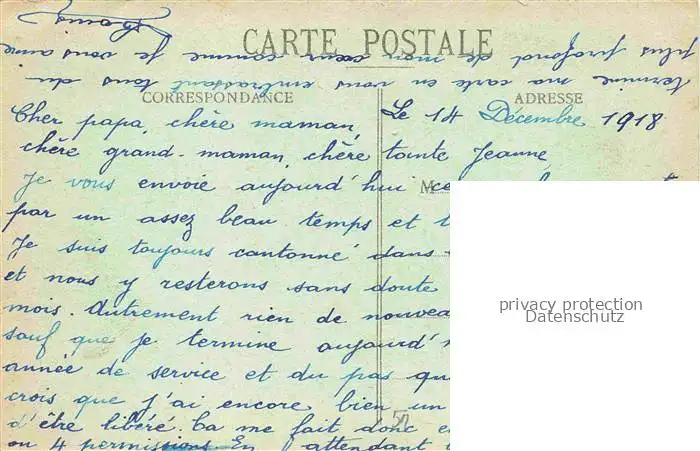 CARTE POSTALE
CORRESPONDANCE
ADRESSE
Le 14 Décembre 1918
Cher papa, chère maman,
chère grand-maman, chère tante Jeanne
Je vous envoie aujourd'hui
M
par un assez beau temps et
Je suis toujours cantonné dans
et nous y resterons sans doute
mois. Autrement rien de
sauf que je termine
année de service et du pas
crois que j'ai encore bien un
d'être libéré. Ca me fait donc
ou 4 permissions. En attendant
termine ma carte en vous embrassant tous du
plus profond de mon cœur comme je vous aime
privacy protection
Datenschutz